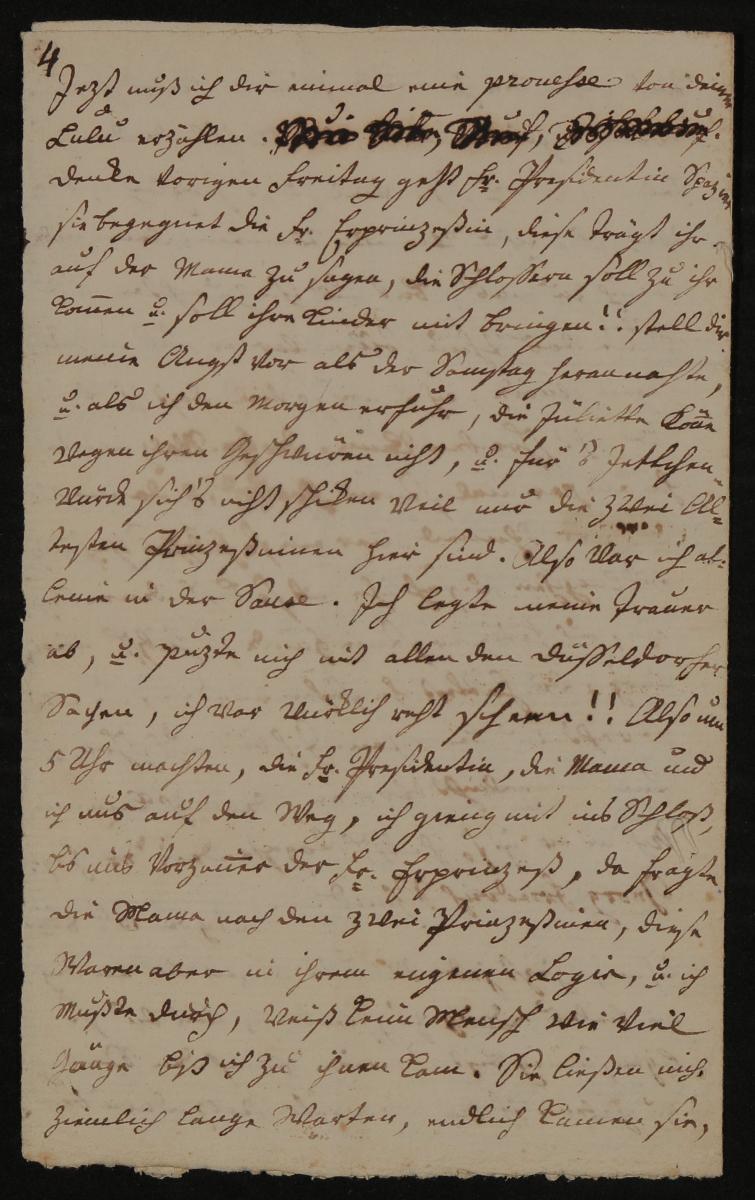 4
Jezt muß ich dir einmal eine prouesse von deiner
Lulu erzählen.
denke vorigen Freitag geht Fr. Presidentin Spaziren
sie begegnet die Fr. Erprinzeßin, diese trägt ihr
auf der Mama zu sagen, die Schlossern soll zu ihr
kom̄en u. soll ihre Kinder mit bringen!! stell dir
meine Angst vor als der Samstag heran nahte,
u. als ich den Morgen erfuhr, die Juliette kön̄e
wegen ihren Geschwüren nicht, u. für 's Jettchen
würde sich's nicht schiken weil nur die zwei Äl=
testen Prinzeßinen hier sind. Also war ich al=
leine in der Sauce. Ich legte meine Trauer
ab, u. puzte mich mit allen den Düsseldorfer
Sachen, ich war würklich recht scheen!! Also um
5 Uhr machten, die Fr. Presidentin, die Mama und
ich uns auf den Weg, ich gieng mit ins Schloß,
bis ins Vorzim̄er der Fr. Erprinzeß, da fragte
die Mama nach den zwei Prinzeßinen, diese
waren aber in ihrem eigenen Logie, u. ich
mußte durch, weiß kein Mensch wie viel
Gänge biß ich zu ihnen kam. Sie ließen mich
ziemlich lange warten, endlich kamen sie,